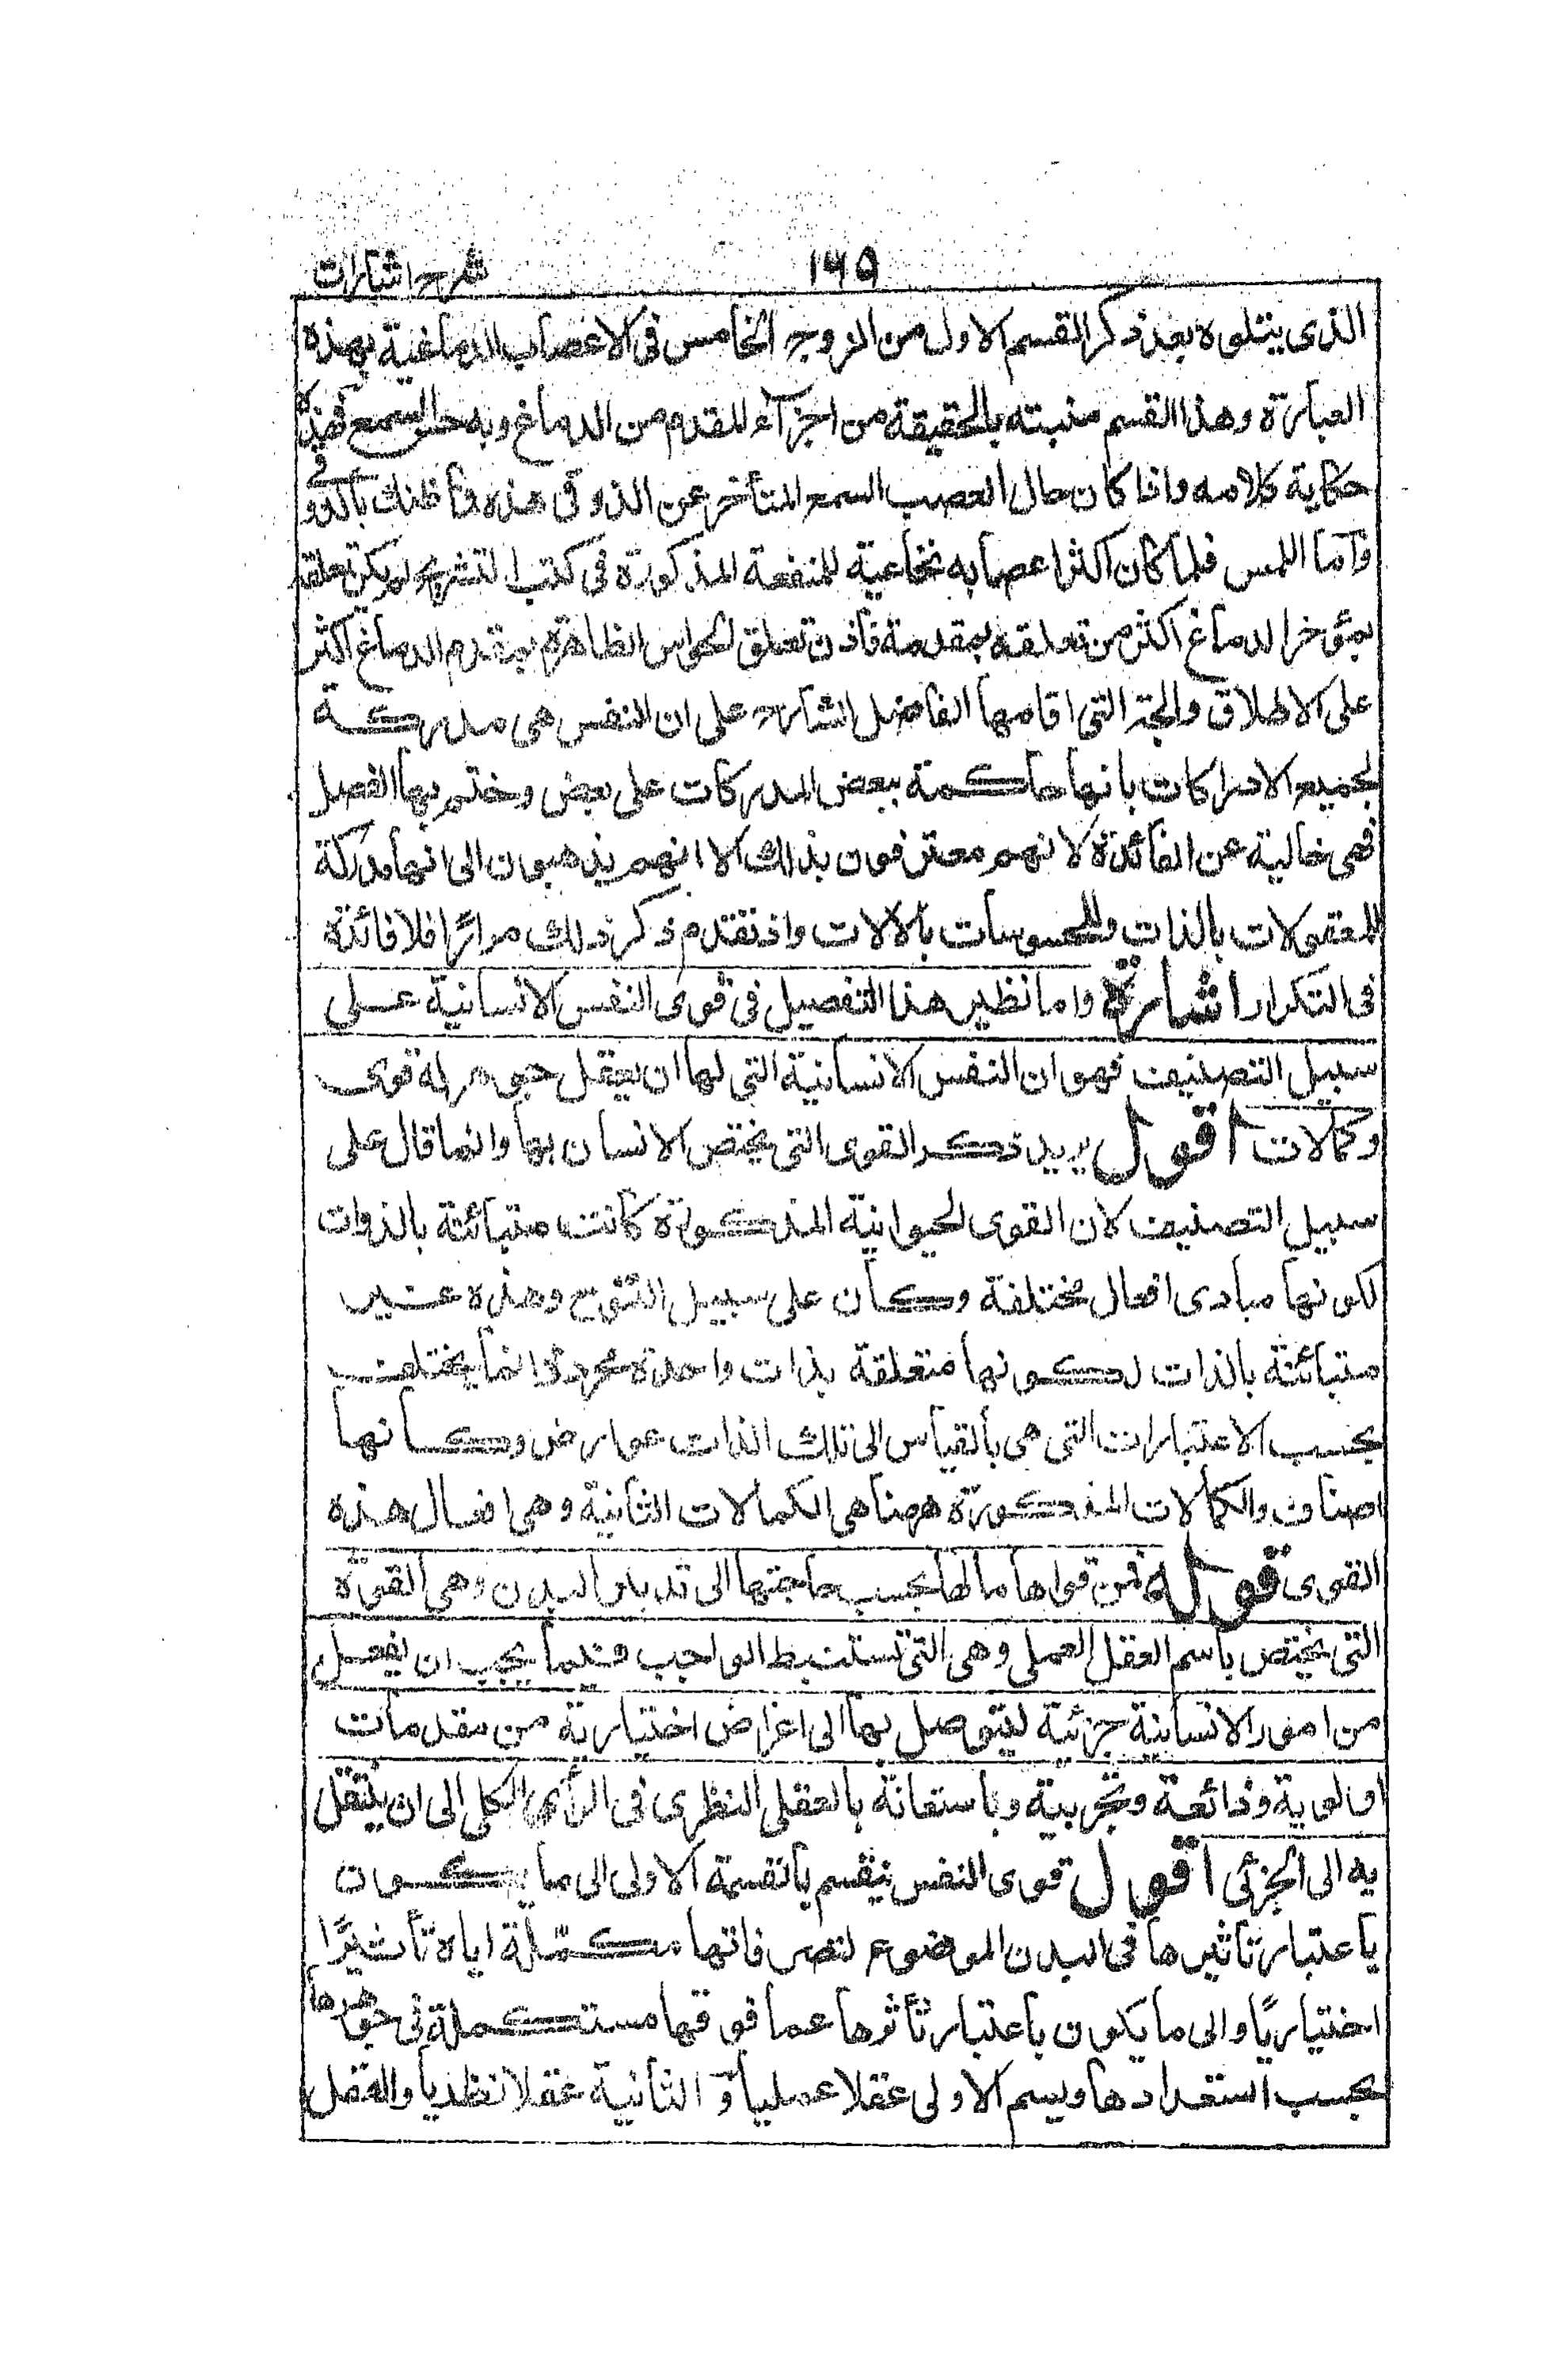 شرح اشارات
١٦٥
الذى يتلوه بعد ذكر القسم الاول من الزوج الخامس فى الاعصاب الدماغية بهذه
العبارة وهذا القسم منبته بالحقيقة من اجزاء المقدم من الدماغ وبه حس السمع فهذا
حكاية كلامه واذا كان حال العصب السمع المتأخر عن الذوق هذه فما ظنك بالذوق
وأما اللمس فلما كان اكثر اعصابه نخاعية للمنفعة المذكورة فى كتب التشريح لم يكن تعلقه
بمؤخر الدماغ اكثر من تعلقه بمقدمة فأذن تعلق الحواس الظاهرة بمقدم الدماغ اكثر
على الاطلاق والحجة التى اقامها الفاضل الشارح على ان النفس هى مدركة
لجميع الادراكات بانها حاكمة ببعض المدركات على بعض وختم بها الفصل
فهى خالية عن الفائدة لانهم معترفون بذلك الا انهم يذهبون الى انها مدركة
للمعقولات بالذات وللمحسوسات بالالات واذ تقدم ذكر ذلك مرارا فلا فائدة
فى التكرار اشارة واما نظير هذا التفصيل فى قوى النفس الانسانية على
سبيل التصنيف فهو ان النفس الانسانية التى لها ان يعقل جوهر له قوى
وكمالات اقول يريد ذكر القوى التى يختص الانسان بها وانما قال على
سبيل التصنيف لان القوى الحيوانية المذكورة كانت متبائنة بالذوات
لكونها مبادى افعال مختلفة وكان على سبيل التنويع وهذه غير
متبائنة بالذات لكونها متعلقة بذات واحدة مجردة انما يختلف
بحسب الاعتبارات التى هى بالقياس الى تلك الذات عوارض وكانها
اصناف والكمالات المذكورة ههنا هى الكمالات الثانية وهى افعال هذه
القوى قوله فمن قواها ما لها بحسب حاجتها الى تدبير البدن وهى القوة
التى يختص باسم العقل العملى وهى التى تستنبط الواجب فيما يجب ان يفعل
من امور الانسانية جزئية ليتوصل بها الى اغراض اختيارية من مقدمات
اولوية وذائعة وتجربية وباستعانة بالعقل النظرى فى الرأى الكلى الى ان ينتقل
به الى الجزئى اقول قوى النفس ينقسم بالقسمة الاولى الى ما يكون
باعتبار تأثيرها فى البدن الموضوع لتصرفاتها مكملة اياه تأثيرًا
اختياريًا والى ما يكون باعتبار تأثرها عما فوقها مستكملة فى جوهرها
بحسب استعدادها ويسم الاولى عقلا عمليا و الثانية عقلا نظريا والعقل